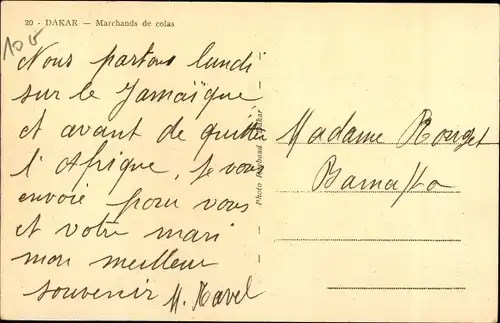 20 - DAKAR — Marchands de colas
10f
Nous partons lundi
sur le Jamaïque
et avant de quitter
l'Afrique, je vous
envoie pour vous
et votre mari
mon meilleur
souvenir M. Havel
Photo Dakar
Madame Rouget
Bamako